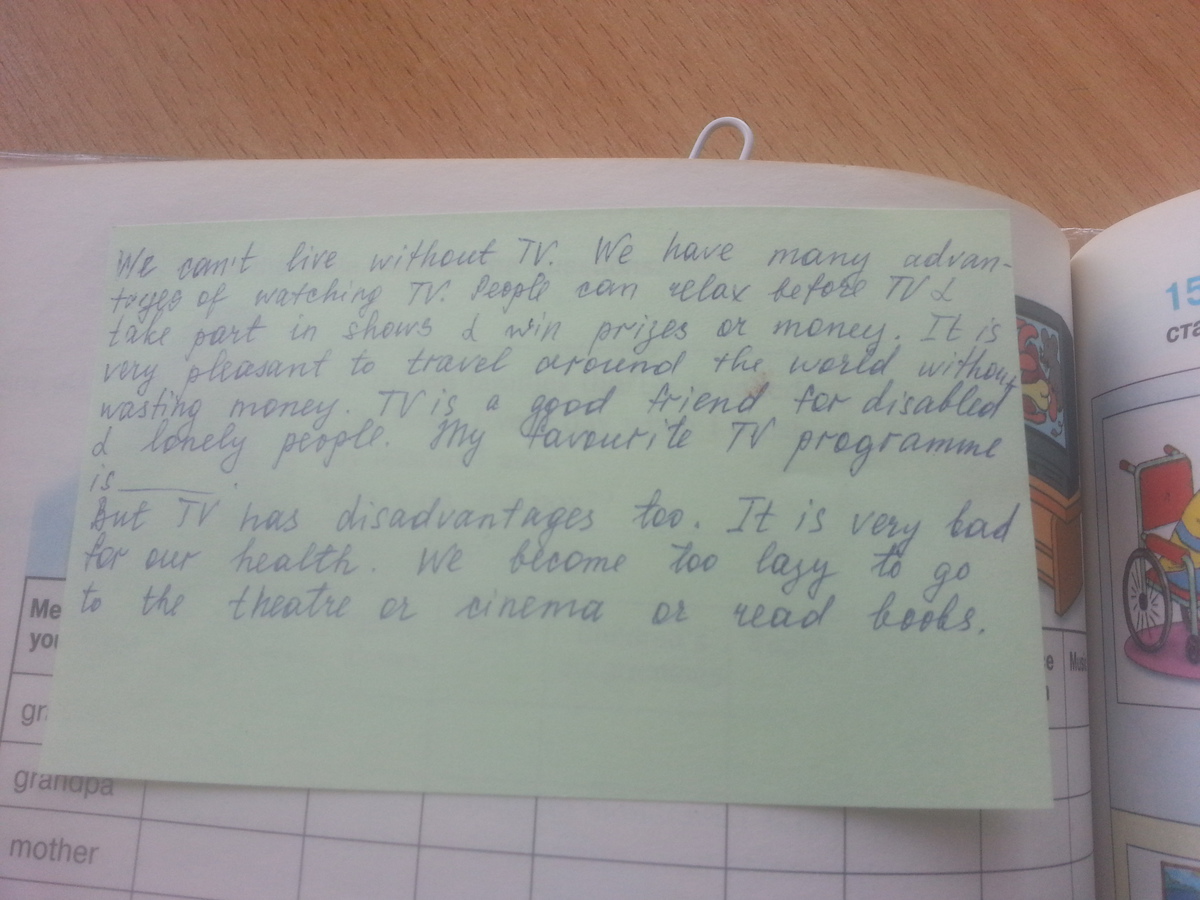 We can't live without TV. We have many advan-
tages of watching TV. People can relax before TV &
take part in shows & win prizes or money. It is
very pleasant to travel around the world without
wasting money. TV is a good friend for disabled
& lonely people. My favourite TV programme
is ______ .
But TV has disadvantages too. It is very bad
for our health. We become too lazy to go
to the theatre or cinema or read books.
Me
you
gr
grandpa
mother
e
Musi
15
ста